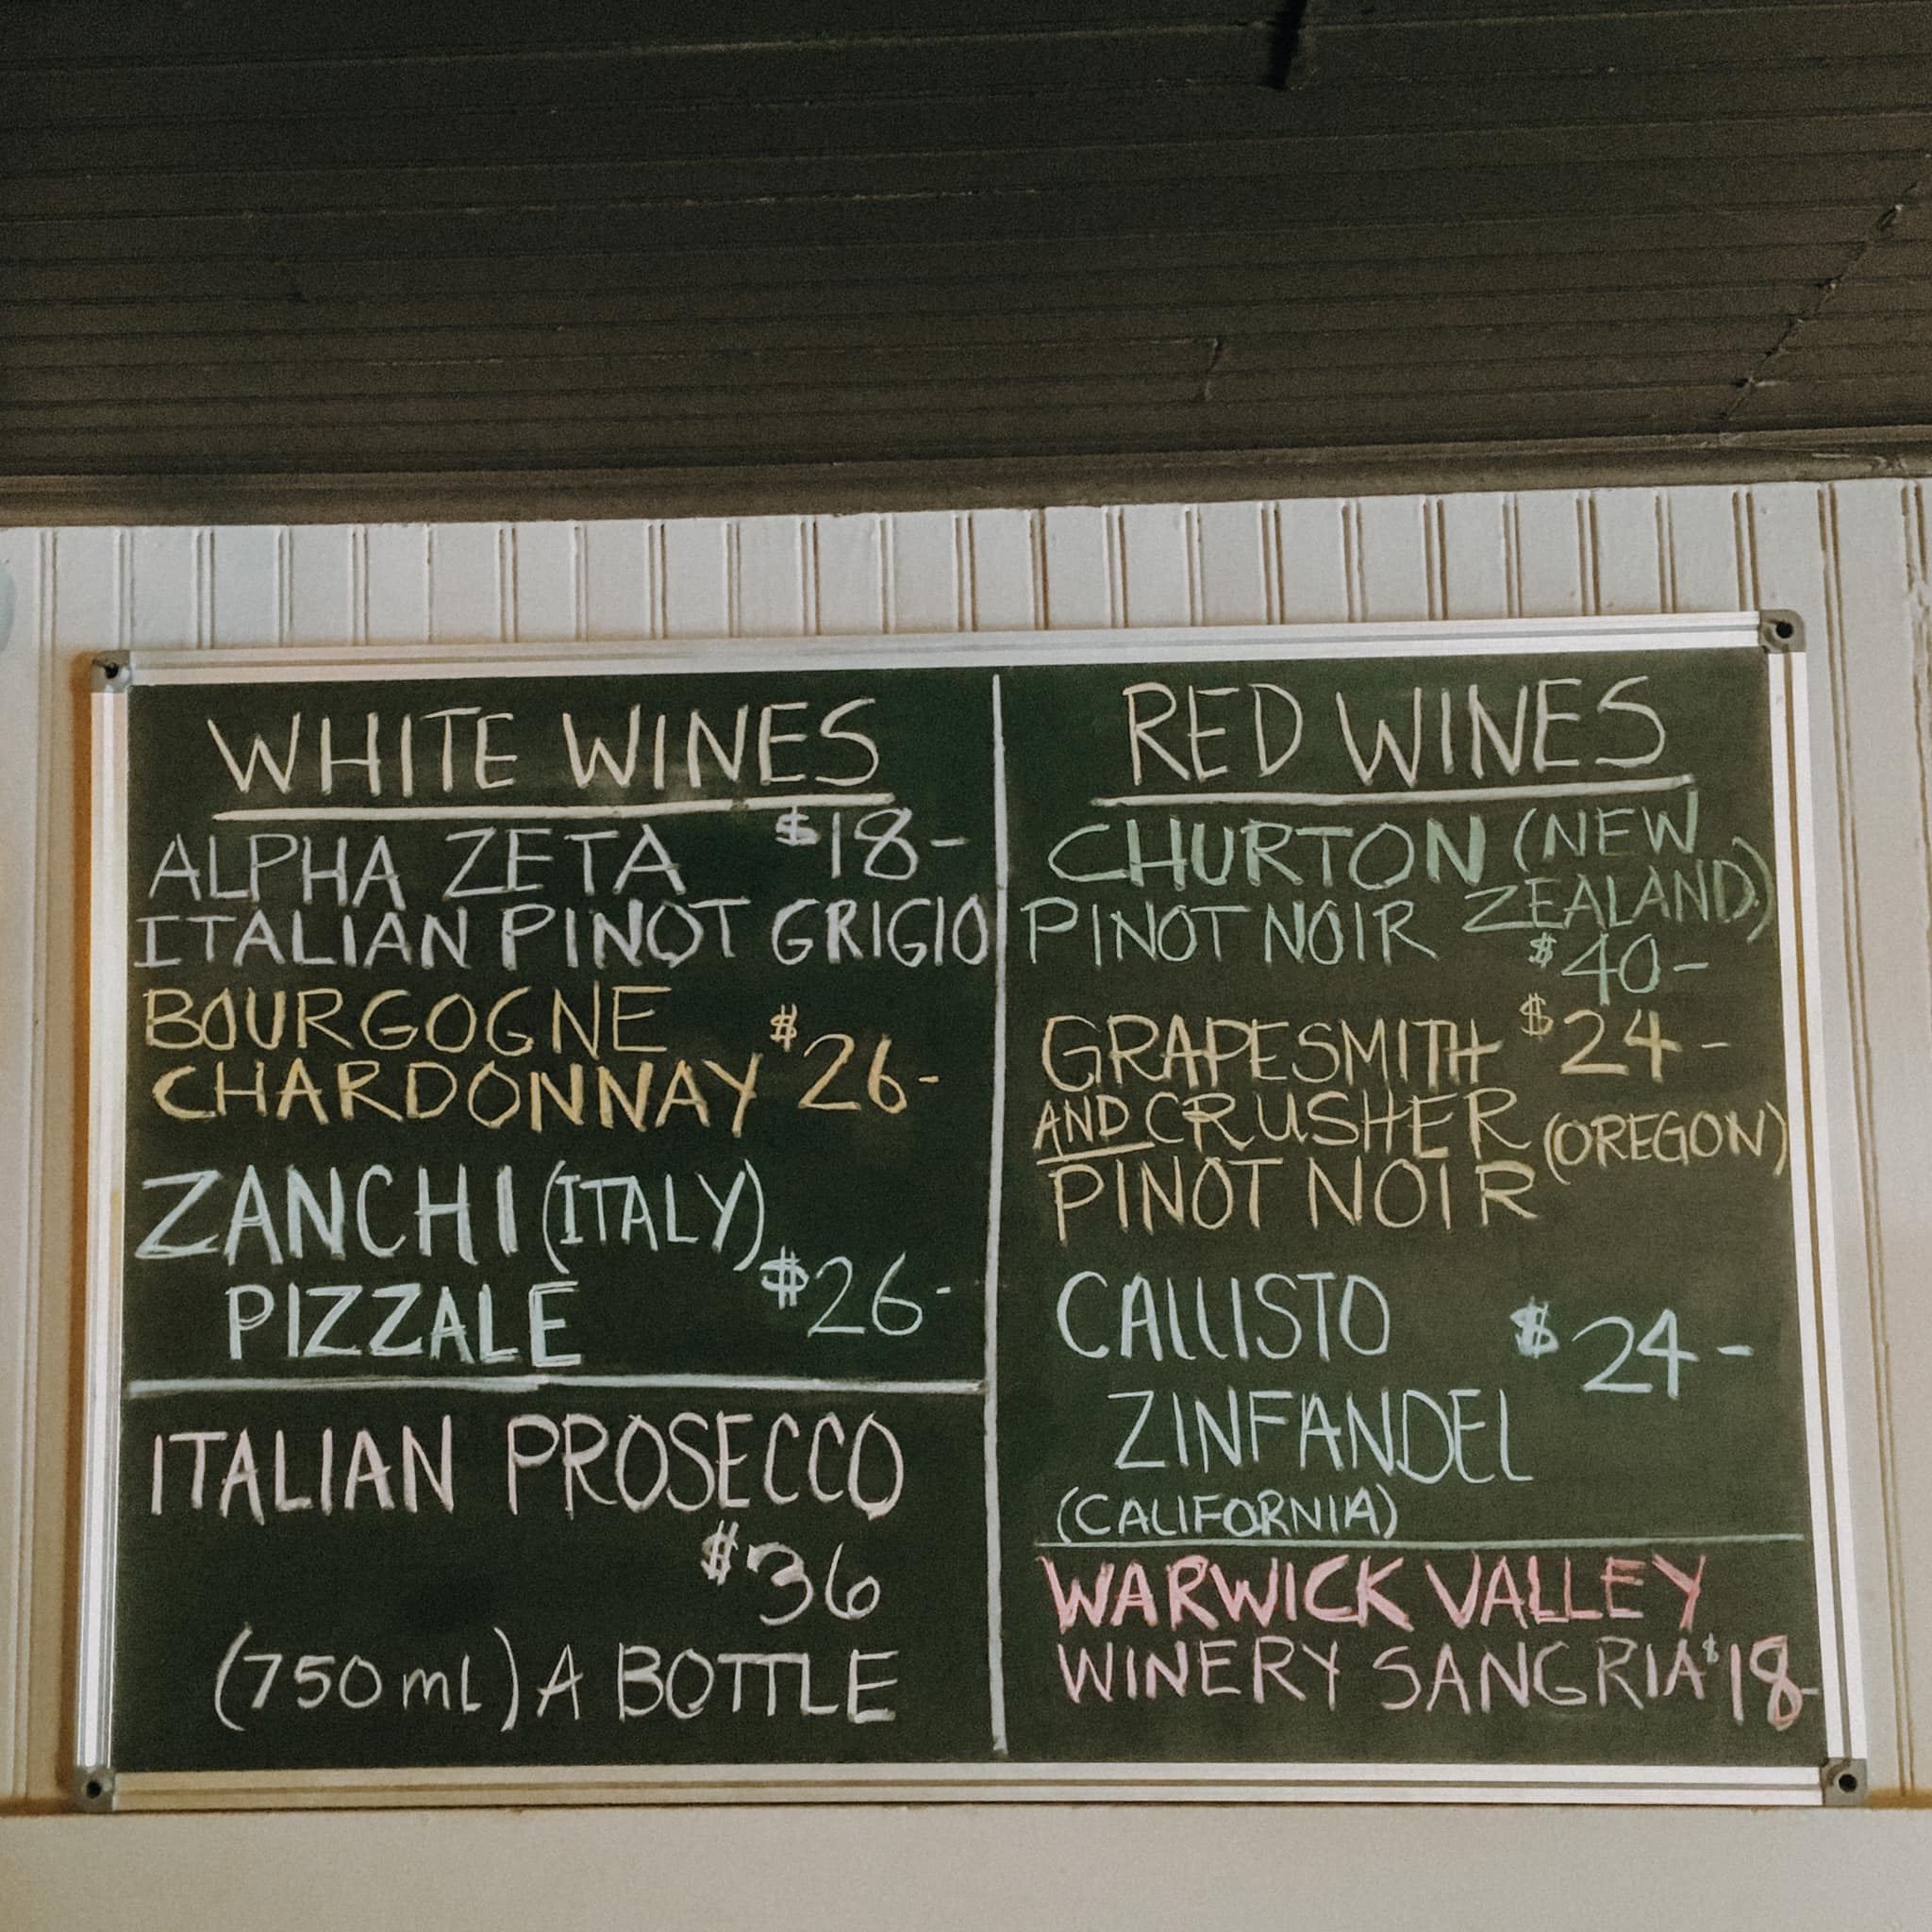 WHITE WINES
ALPHA ZETA $18-
ITALIAN PINOT GRIGIO
BOURGOGNE
CHARDONNAY $26-
ZANCHI (ITALY)
PIZZALE $26-
ITALIAN PROSECCO
$36
(750 mL) A BOTTLE
RED WINES
CHURTON (NEW
PINOT NOIR ZEALAND)
$40-
GRAPESMITH $24-
AND CRUSHER (OREGON)
PINOT NOIR
CALLISTO $24-
ZINFANDEL
(CALIFORNIA)
WARWICK VALLEY
WINERY SANGRIA $18-